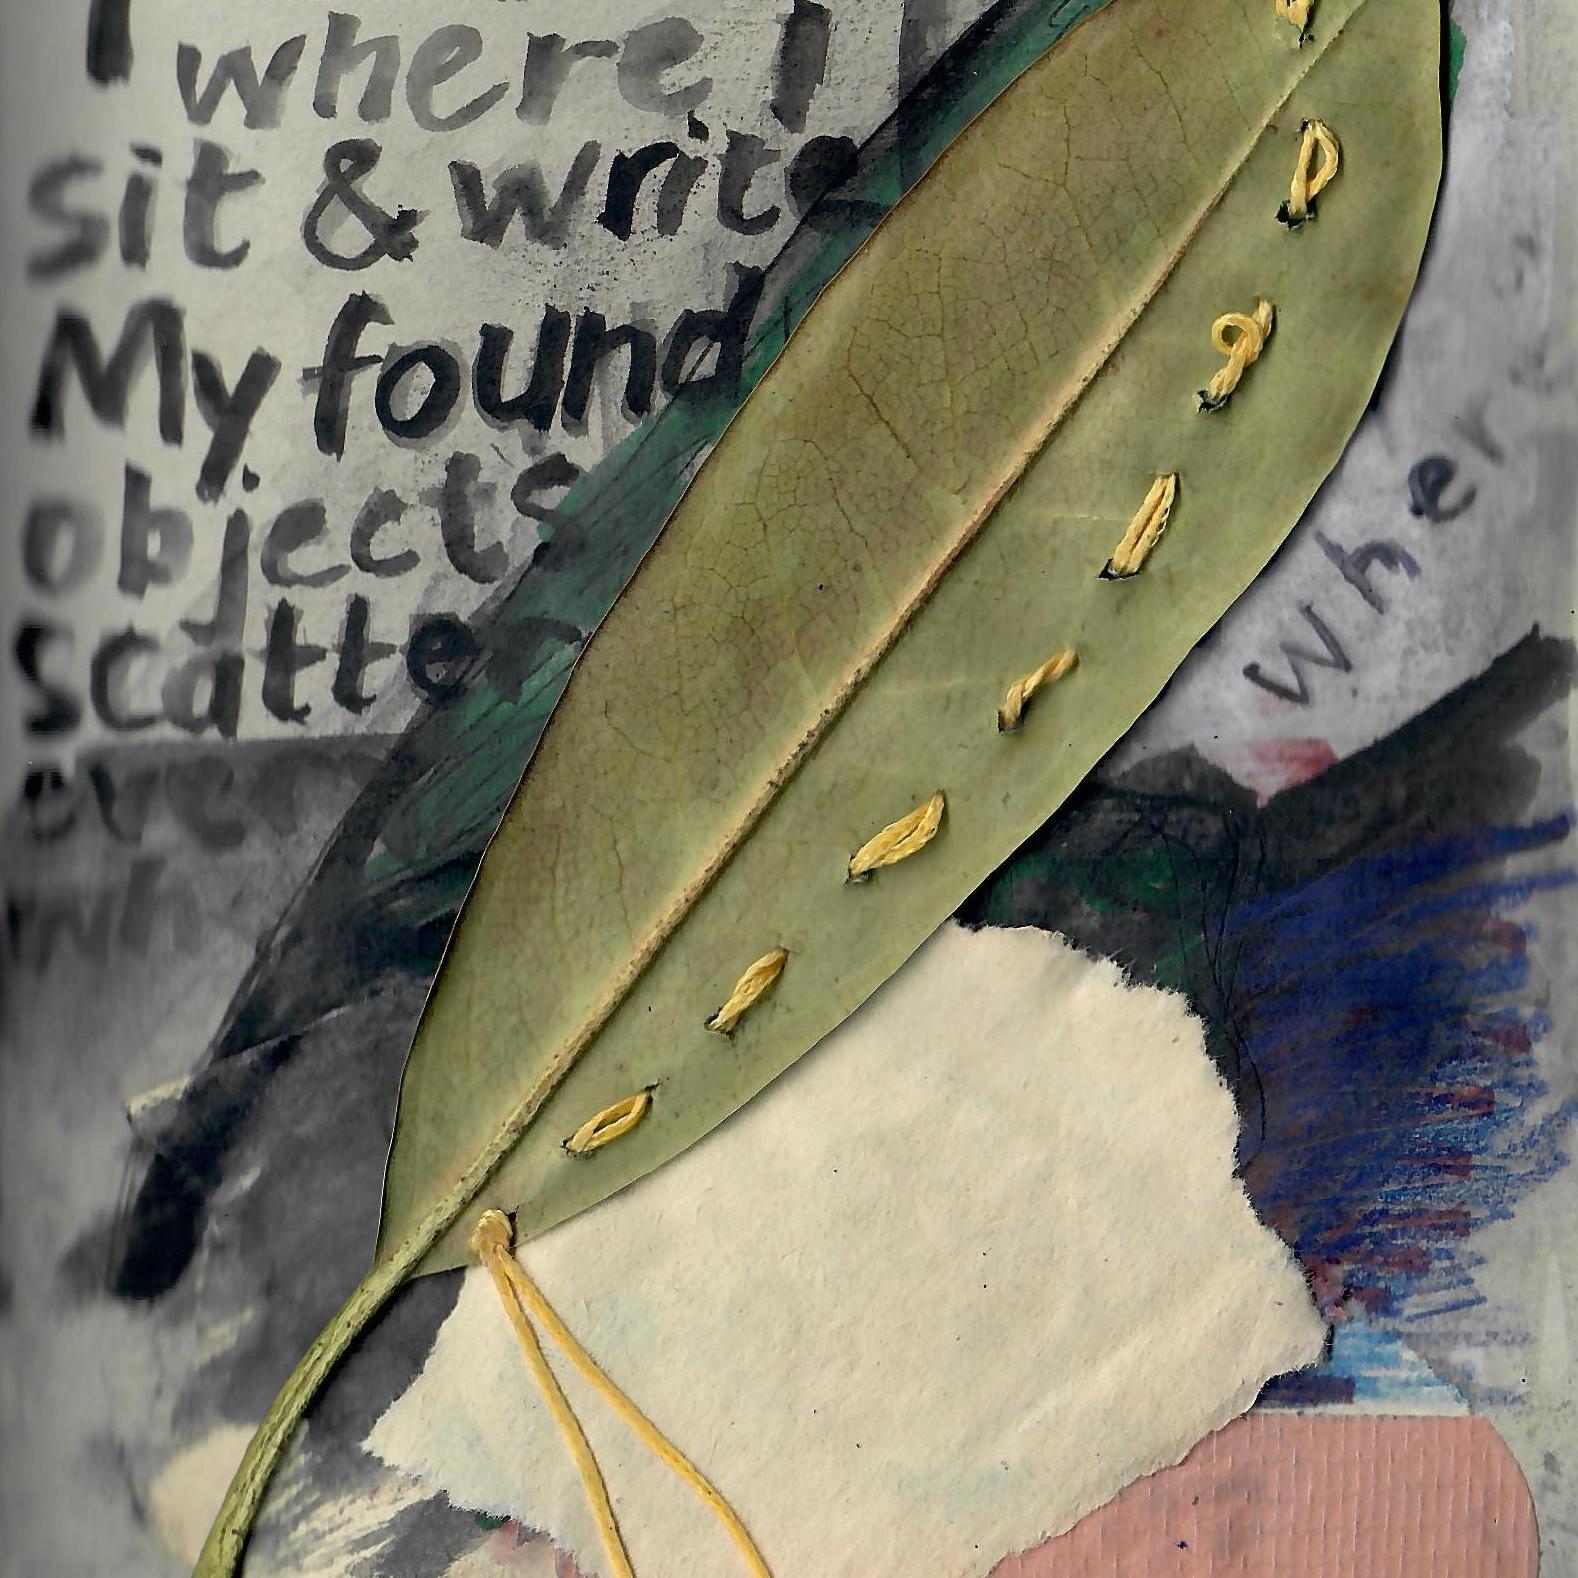 I where I
sit & write
My found
objects
scatte
eve
Wher